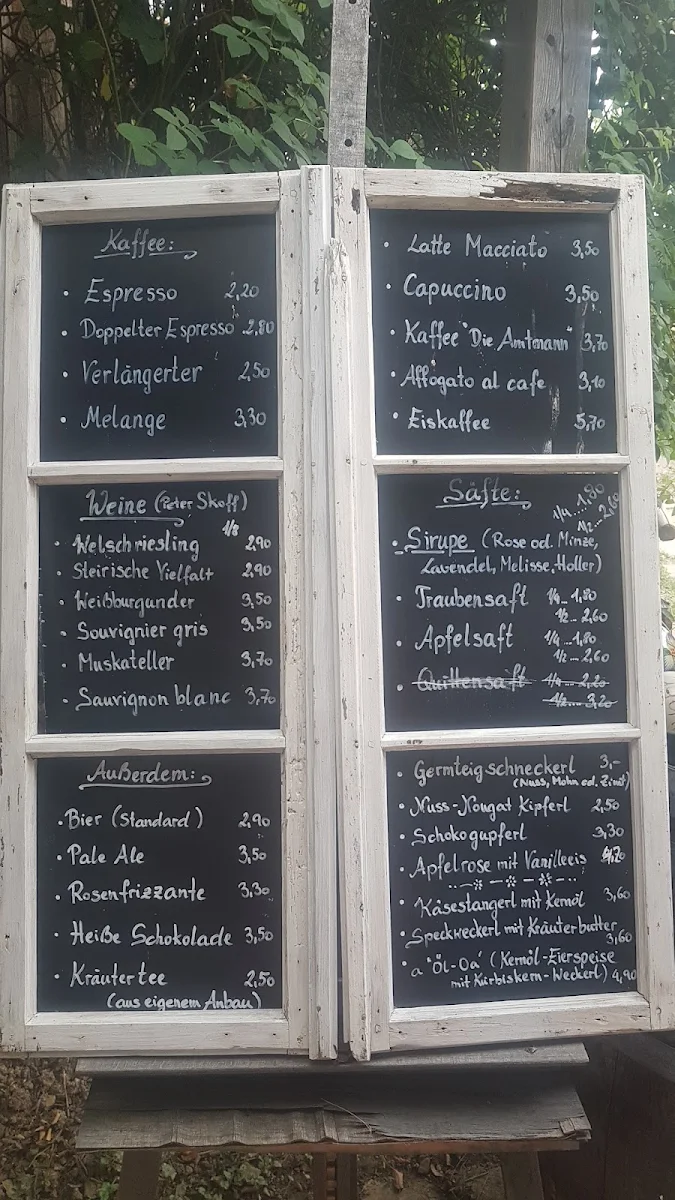 Kaffee:
• Espresso 2,20
• Doppelter Espresso 2,80
• Verlängerter 2,50
• Melange 3,30
• Latte Macciato 3,50
• Capuccino 3,50
• Kaffee "Die Amtmann" 3,70
• Affogato al cafe 3,10
• Eiskaffee 5,70
Weine (Peter Skoff)
1/8
• Welschriesling 2,90
• Steirische Vielfalt 2,90
• Weißburgunder 3,50
• Souvignier gris 3,50
• Muskateller 3,70
• Sauvignon blanc 3,70
Säfte:
1/4...1,80
1/2...2,60
• Sirupe (Rose od. Minze,
Lavendel, Melisse, Holler)
• Traubensaft 1/4...1,80
1/2...2,60
• Apfelsaft 1/4...1,80
1/2...2,60
• Quittensaft 1/4...2,20
1/2...3,20
Außerdem:
• Bier (Standard) 2,90
• Pale Ale 3,50
• Rosenfrizzante 3,30
• Heiße Schokolade 3,50
• Kräutertee 2,50
(aus eigenem Anbau)
• Germteigschneckerl 3,-
(Nuss, Mohn od. Zimt)
• Nuss-Nougat Kipferl 2,50
• Schokogupferl 3,30
• Apfelrose mit Vanilleeis 4,20
• Käsestangerl mit Kernöl 3,60
• Speckweckerl mit Kräuterbutter
3,60
• a "Öl-Oa" (Kernöl-Eierspeise
mit Kürbiskern-Weckerl) 4,90